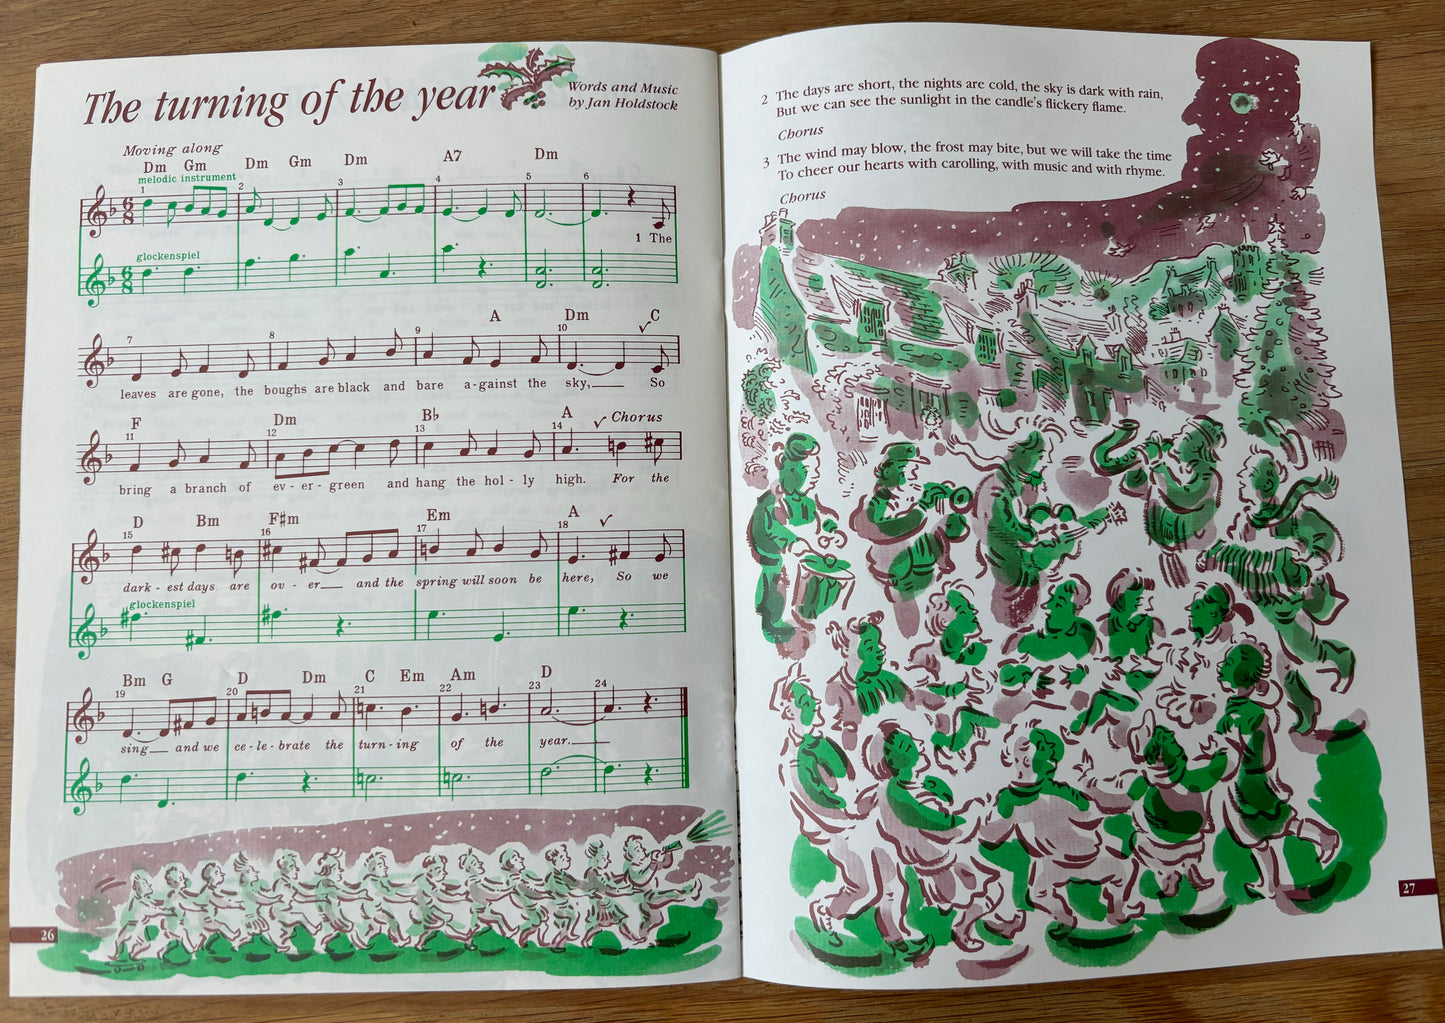 The turning of the year
Words and Music
by Jan Holdstock
Moving along
Dm Gm Dm Gm Dm A7 Dm
melodic instrument
1 2 3 4 5 6
6 8
1 The
glockenspiel
6 8
A Dm C
7 8 9 10
leaves are gone, the boughs are black and bare a-gainst the sky, So
F Dm B♭ A Chorus
11 12 13 14
bring a branch of ev - er - green and hang the hol - ly high. For the
D Bm F♯m Em A
15 16 17 18
dark - est days are ov - er and the spring will soon be here, So we
glockenspiel
Bm G D Dm C Em Am D
19 20 21 22 23 24
sing and we ce - le - brate the turn - ing of the year.
26
2 The days are short, the nights are cold, the sky is dark with rain,
But we can see the sunlight in the candle's flickery flame.
Chorus
3 The wind may blow, the frost may bite, but we will take the time
To cheer our hearts with carolling, with music and with rhyme.
Chorus
27